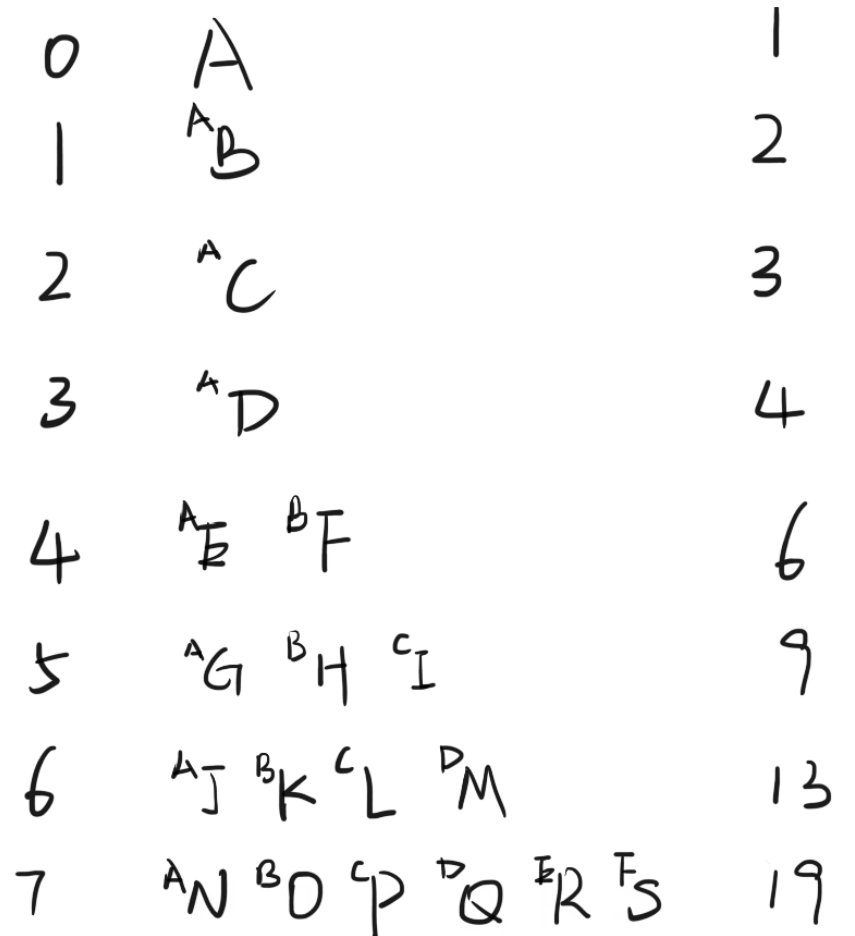 0 A 1
1 ᴬB 2
2 ᴬC 3
3 ᴬD 4
4 ᴬE ᴮF 6
5 ᴬG ᴮH ᶜI 9
6 ᴬJ ᴮK ᶜL ᴰM 13
7 ᴬN ᴮO ᶜP ᴰQ ᴱR ᶠS 19